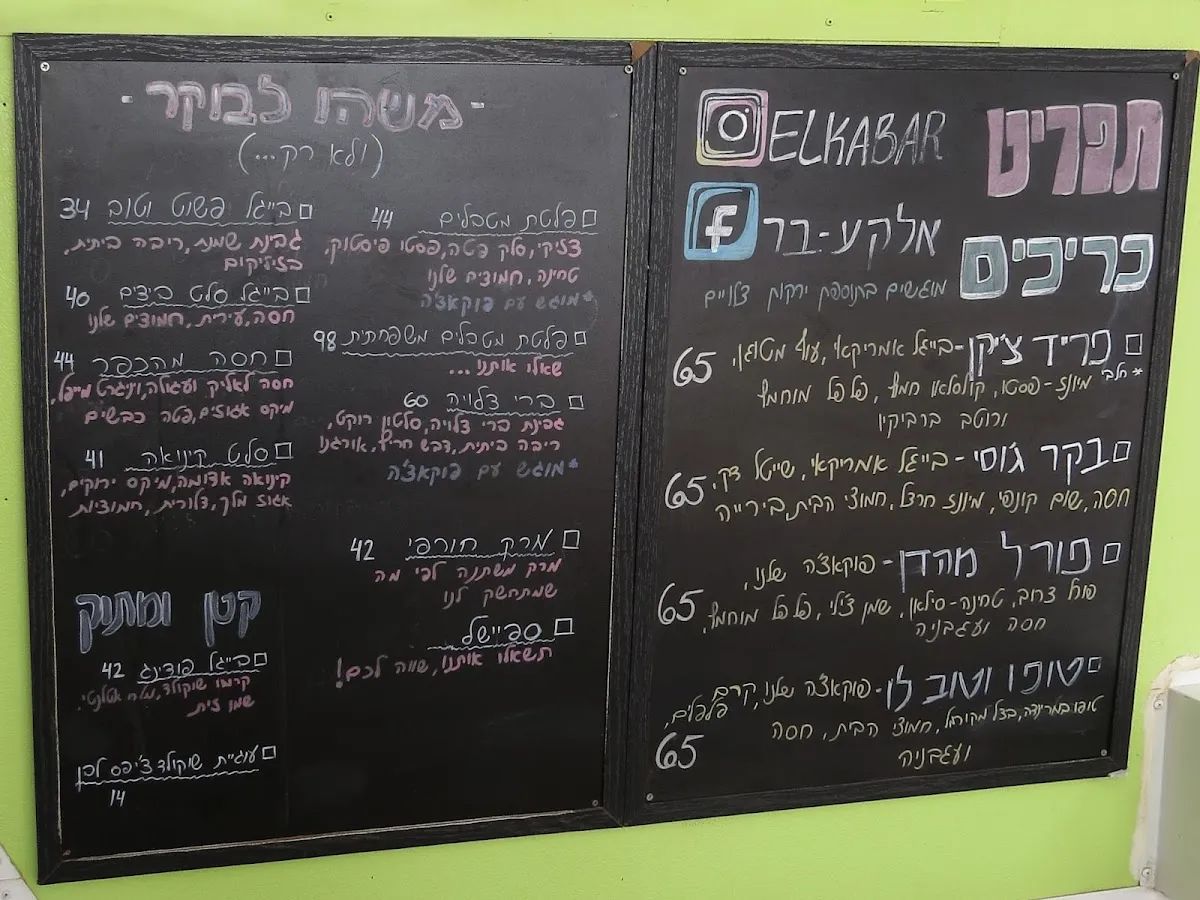 תפריט
ELKABAR
אלקע-בר
כריכים
מוגשים בתוספת ירקות צלויים
פריד צ'יקן - בייגל אמריקאי, עוף מטוגן,
*חלבי
65
מיונז-פסטו, קולסלאו חמוץ, פלפל מוחמץ
ורוטב ברביקיו
בקר ג'וסי - בייגל אמריקאי, שייטל דק,
65
חסה, שום קונפי, מיונז חרדל, חמוצי הבית, בירייה
פורל מהדן - פוקאצ'ה שלנו,
65
פורל צרוב, טחינה-סילאן, שמן צ'ילי, פלפל מוחמץ,
חסה ועגבניה
טופו וטוב לו - פוקאצ'ה שלנו, קרם פלפלים,
טופו במרינדה, בצל מקורמל, חמוצי הבית, חסה
65
ועגבניה
- משהו לבוקר -
(ולא רק...)
פלטת מטבלים 44
צזיקי, סלק פטה, פסטו פיסטוק,
טחינה, חמוצים שלנו
*מוגש עם פוקאצ'ה
פלטת מטבלים משפחתית 98
שאלו אותנו ...
ברי צלויה 60
גבינת ברי צלויה, סלטון רוקט,
ריבה ביתית, דבש חריף, אורגנו
*מוגש עם פוקאצ'ה
מרק חורפי 42
מרק משתנה לפי מה
שמתחשק לנו
ספיישל
תשאלו אותנו, שווה לכם!
בייגל פשוט וטוב 34
גבינת שמנת, ריבה ביתית,
בזיליקום
בייגל סלט ביצים 40
חסה, עירית, חמוצים שלנו
חסה מהכפר 44
חסה לאליק ועגולה, ויניגרט מייפל,
מיקס אגוזים, פטה כבשים
סלט קינואה 41
קינואה אדומה, מיקס ירוקים,
אגוז מלך, דלורית, חמוציות
קטן ומתוק
בייגל פודינג 42
קרמו שוקולד, מלח אטלנטי,
שמן זית
עוגיית שוקולד צ'יפס לבן
14